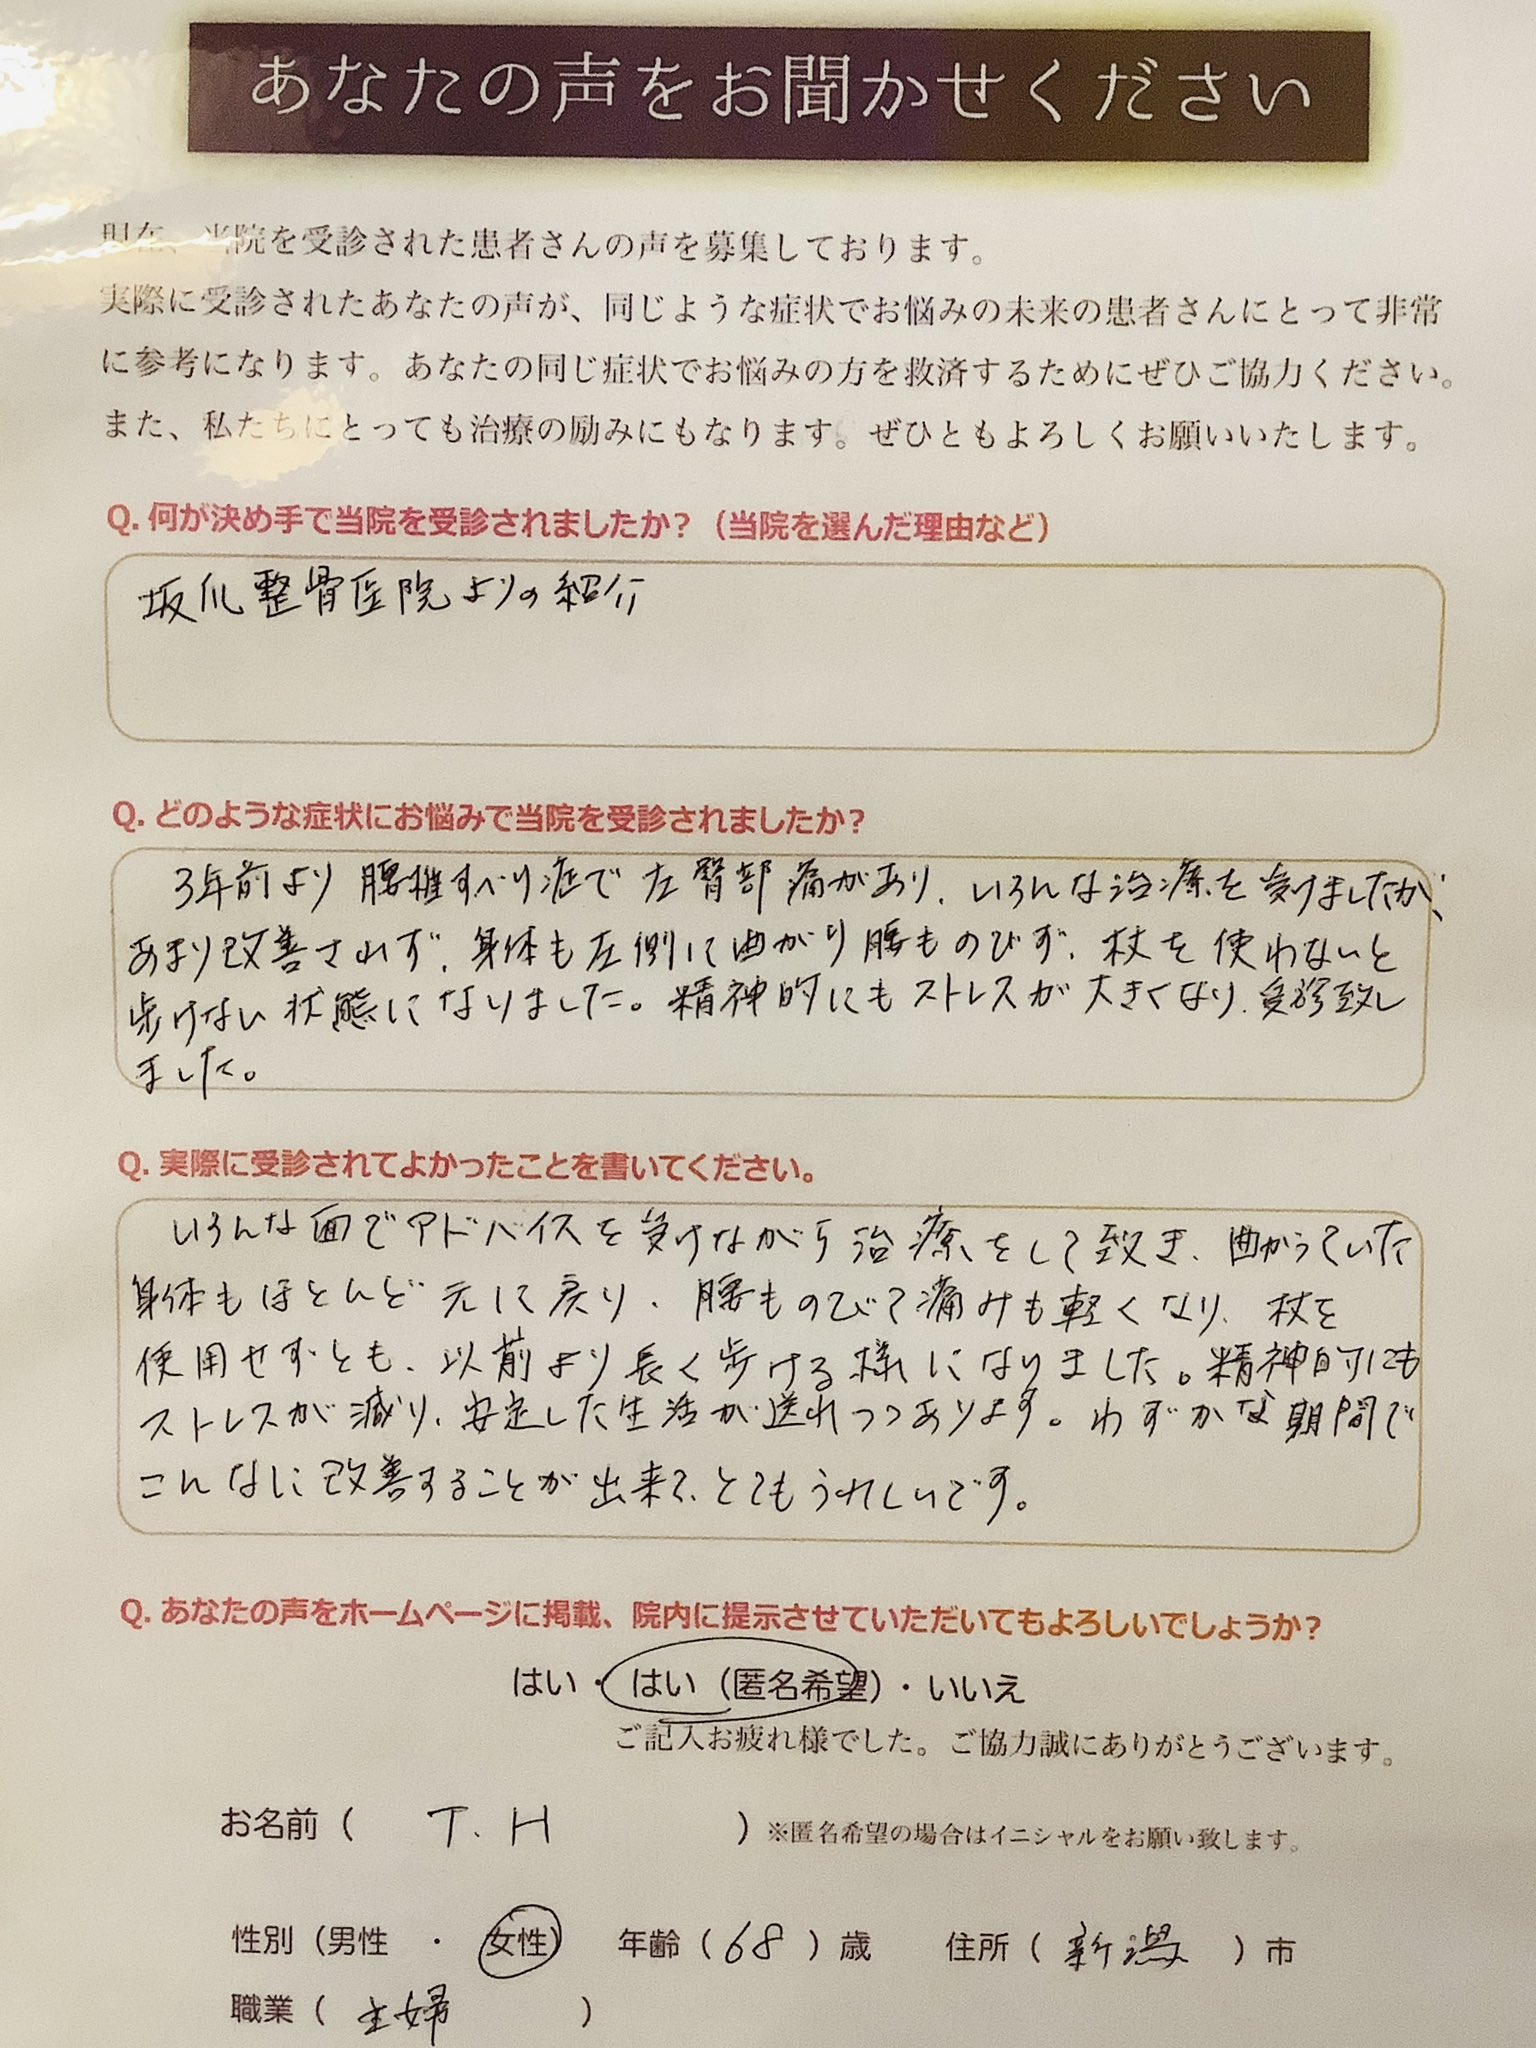 あなたの声をお聞かせください
現在、当院を受診された患者さんの声を募集しております。
実際に受診されたあなたの声が、同じような症状でお悩みの未来の患者さんにとって非常
に参考になります。あなたの同じ症状でお悩みの方を救済するためにぜひご協力ください。
また、私たちにとっても治療の励みにもなります。ぜひともよろしくお願いいたします。
Q. 何が決め手で当院を受診されましたか?（当院を選んだ理由など）
坂爪整骨医院よりの紹介
Q. どのような症状にお悩みで当院を受診されましたか?
3年前より腰椎すべり症で左臀部痛があり、いろんな治療を受けましたが、
あまり改善されず、身体も左側に曲がり腰ものびず、杖を使わないと
歩けない状態になりました。精神的にもストレスが大きくなり、受診致し
ました。
Q. 実際に受診されてよかったことを書いてください。
いろんな面でアドバイスを受けながら治療をして致き、曲がっていた
身体もほとんど元に戻り、腰ものびて痛みも軽くなり、杖を
使用せずとも、以前より長く歩ける様になりました。精神的にも
ストレスが減り、安定した生活が送れつつあります。わずかな期間で
こんなに改善することが出来て、とてもうれしいです。
Q. あなたの声をホームページに掲載、院内に提示させていただいてもよろしいでしょうか?
はい・はい（匿名希望）・いいえ
ご記入お疲れ様でした。ご協力誠にありがとうございます。
お名前（ T. H ）※匿名希望の場合はイニシャルをお願い致します。
性別（男性 ・ 女性） 年齢（68）歳 住所（新潟）市
職業（主婦）